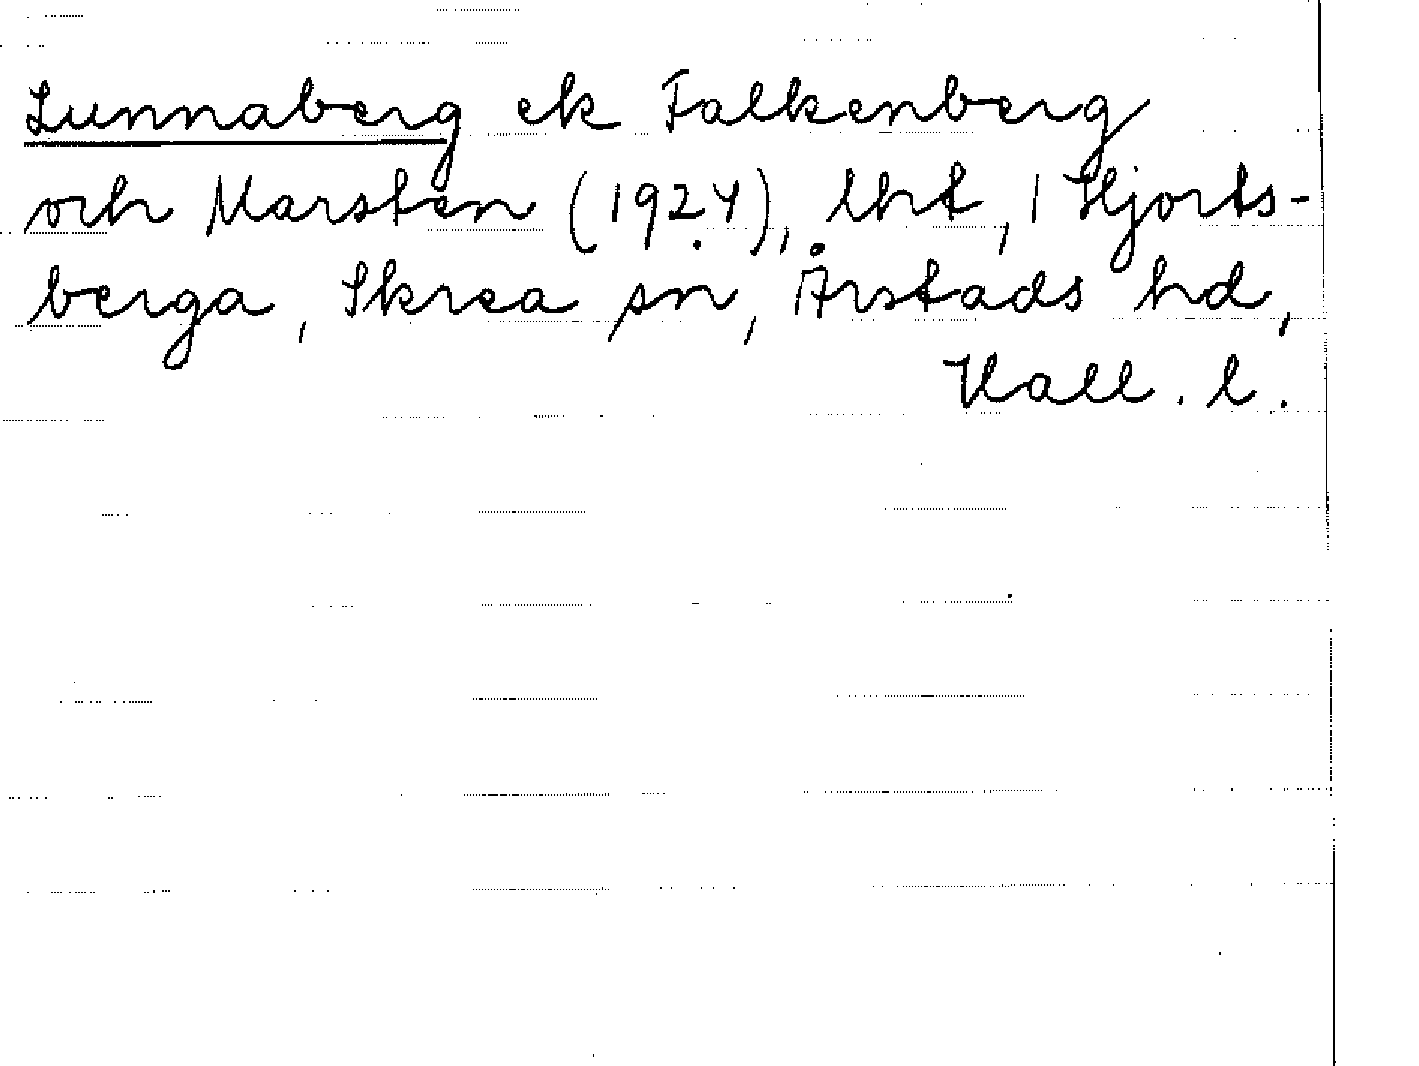 Lunnaberg ek Falkenberg
och Marsten (1924), lht, 1 Hjorts-
berga, Skrea sn, Årstads hd,
Hall. l.